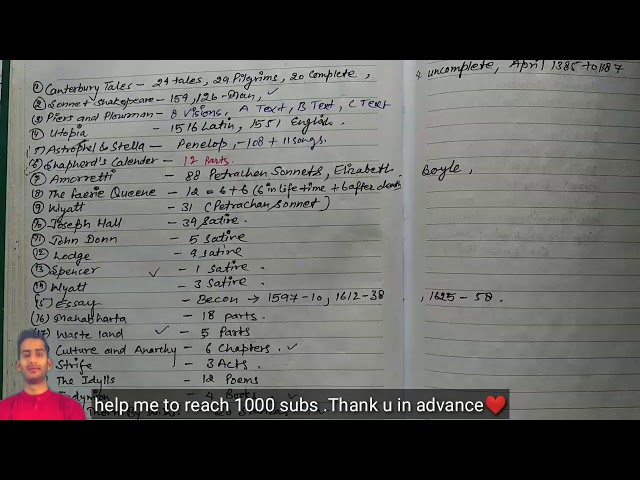 ① Canterbury Tales - 24 tales, 29 Pilgrims, 20 Complete, 4 uncomplete, April 1385 to 1187
② Sonnet Shakespeare - 159, 126 - Man, ✓
③ Piers and Plowman - 8 visions, A Text, B Text, C Text
④ Utopia - 1516 Latin, 1551 English.
5) Astrophel & Stella - Penelop, - 108 + 11 songs.
⑥ Shapherd's Calender - 12 Parts.
⑦ Amorretti - 88 Petrachan Sonnets, Elizabeth Boyle,
⑧ The Faerie Queene - 12 = 6+6 (6 in life time + 6 after death
⑨ Wyatt - 31 (Petrachan Sonnet)
⑩ Joseph Hall - 39 Satire.
⑪ John Donn - 5 Satire
⑫ Lodge - 4 Satire.
⑬ Spencer ✓ - 1 Satire.
⑭ Wyatt - 3 Satire.
(15) Essay - Becon → 1597-10, 1612-38, 1625-58.
(16) Mahabharta - 18 parts.
(17) Waste land ✓ - 5 Parts
Culture and Anarchy - 6 Chapters. ✓
Strife - 3 Acts.
The Idylls - 12 Poems
- 4 Books
help me to reach 1000 subs..Thank u in advance❤️